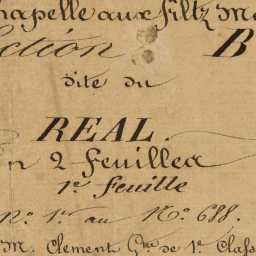 hapelle aux filtz Me
ection B
dite du
REAL.
n 2 feuilles
1re feuille
No. 1er au No. 688.
M. Clement Gme de 1e Class